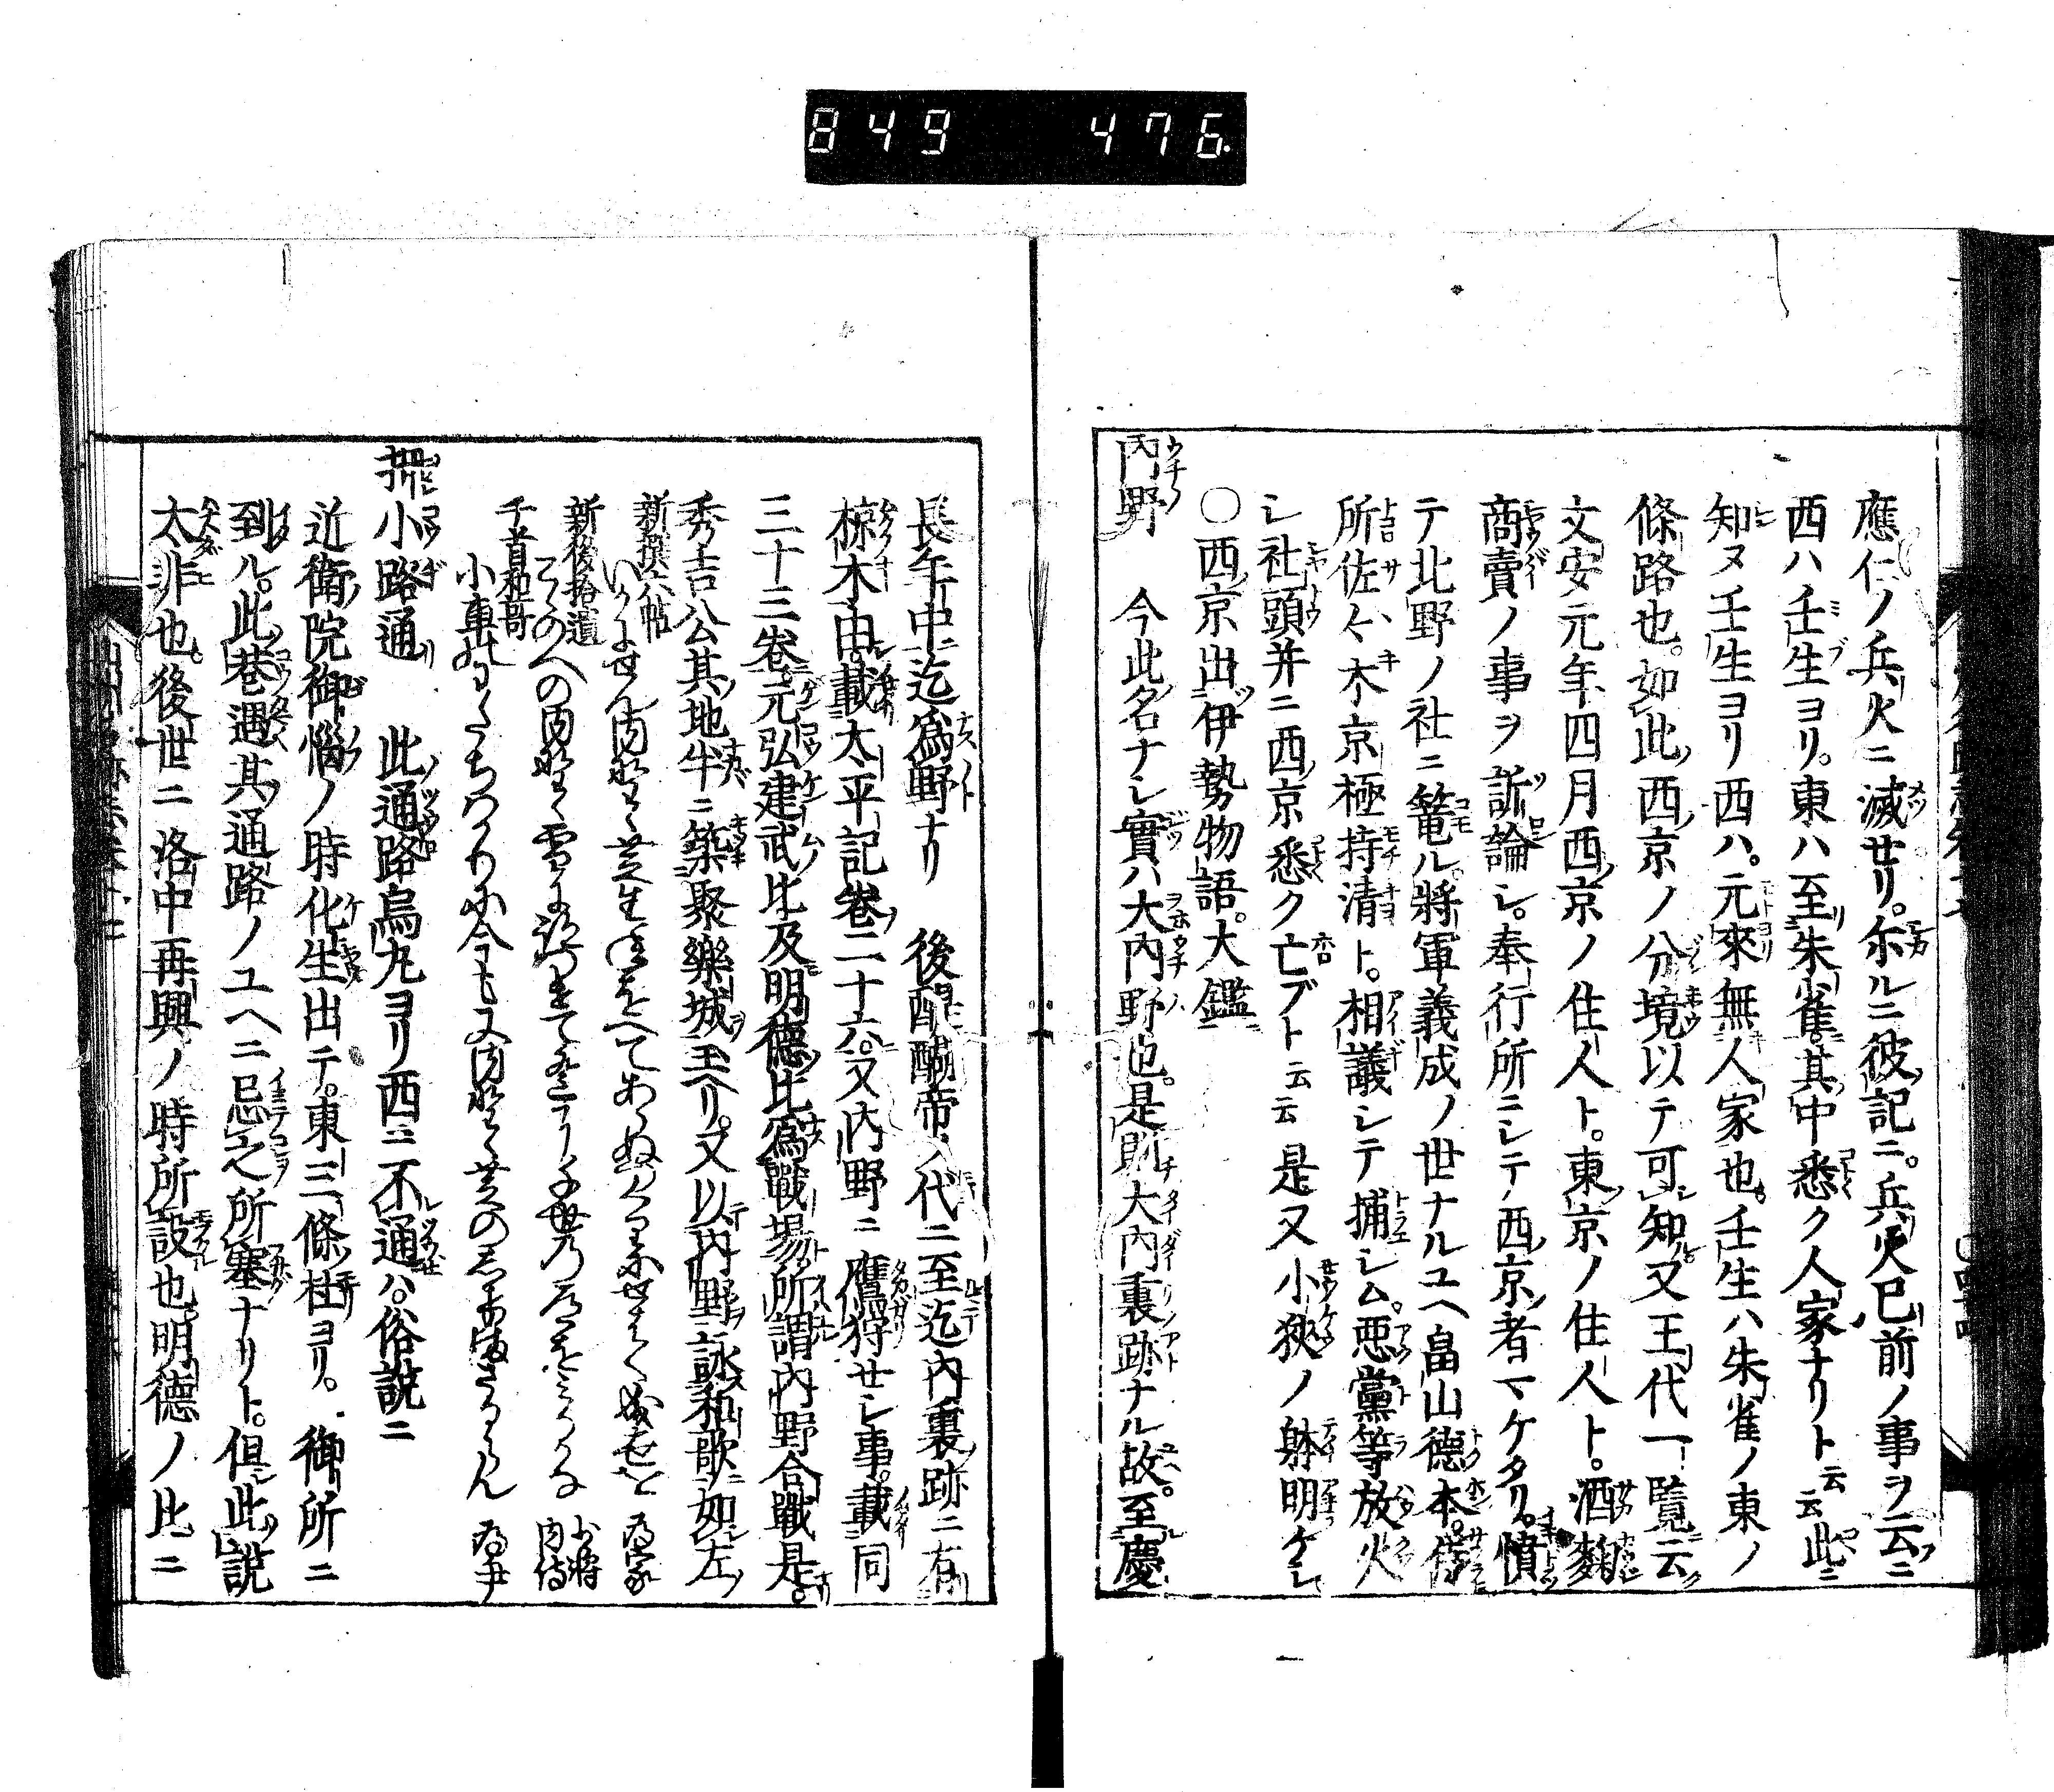 849 476.
應仁ノ兵火ニ滅セリ。尓ルニ彼記ニ。兵火已前ノ事ヲ云ニ
西ハ壬生ヨリ。東ハ至朱雀。其中悉ク人家ナリト云云此ニ
知ヌ壬生ヨリ西ハ。元來無人家也。壬生ハ朱雀ノ東ノ
條路也。如此西京ノ分境以テ可知又王代一覧云
文安元年四月西京ノ住人ト。東京ノ住人ト。酒麴
商賣ノ事ヲ訴論シ。奉行所ニシテ西京者マケタリ。憤
テ北野ノ社ニ篭ル。將軍義成ノ世ナルユヘ畠山德本。侍
所佐々木京極持清ト。相議シテ捕シム。惡黨等放火
シ社頭并ニ西京悉ク亡ブト云云是又小狹ノ躰明ケシ
〇西京出伊勢物語。大鑑
內野 今此名ナシ實ハ大內野也。是則大內裏跡ナル故。至慶
長年中迄爲野ナリ 後醍醐帝ノ代ニ至迄內裏跡ニ有
椋木由。載太平記卷二十六。又內野ニ鷹狩セシ事。載同
三十三卷元弘建武比及明德比爲戰場所謂內野合戰是。
秀吉公其地牛ニ築聚樂城玉ヘリ。又以內野詠和歌如左
新撰六帖
いかにせん內野の芝生年をへてあらぬ 爲家
新後拾遺
こゝのへの內野の雪に 少將內侍
千首和哥
小車の わたちの 今も又內野の芝の 爲尹
擺小路通 此通路烏丸ヨリ西ニ不通ハ。俗說ニ
近衛院御惱ノ時化生出テ。東三條杜ヨリ。御所ニ
到ル。此巷遇其通路ノユヘニ忌之所塞ナリト。但此說
太非也。後世ニ洛中再興ノ時所設也。明德ノ比ニ